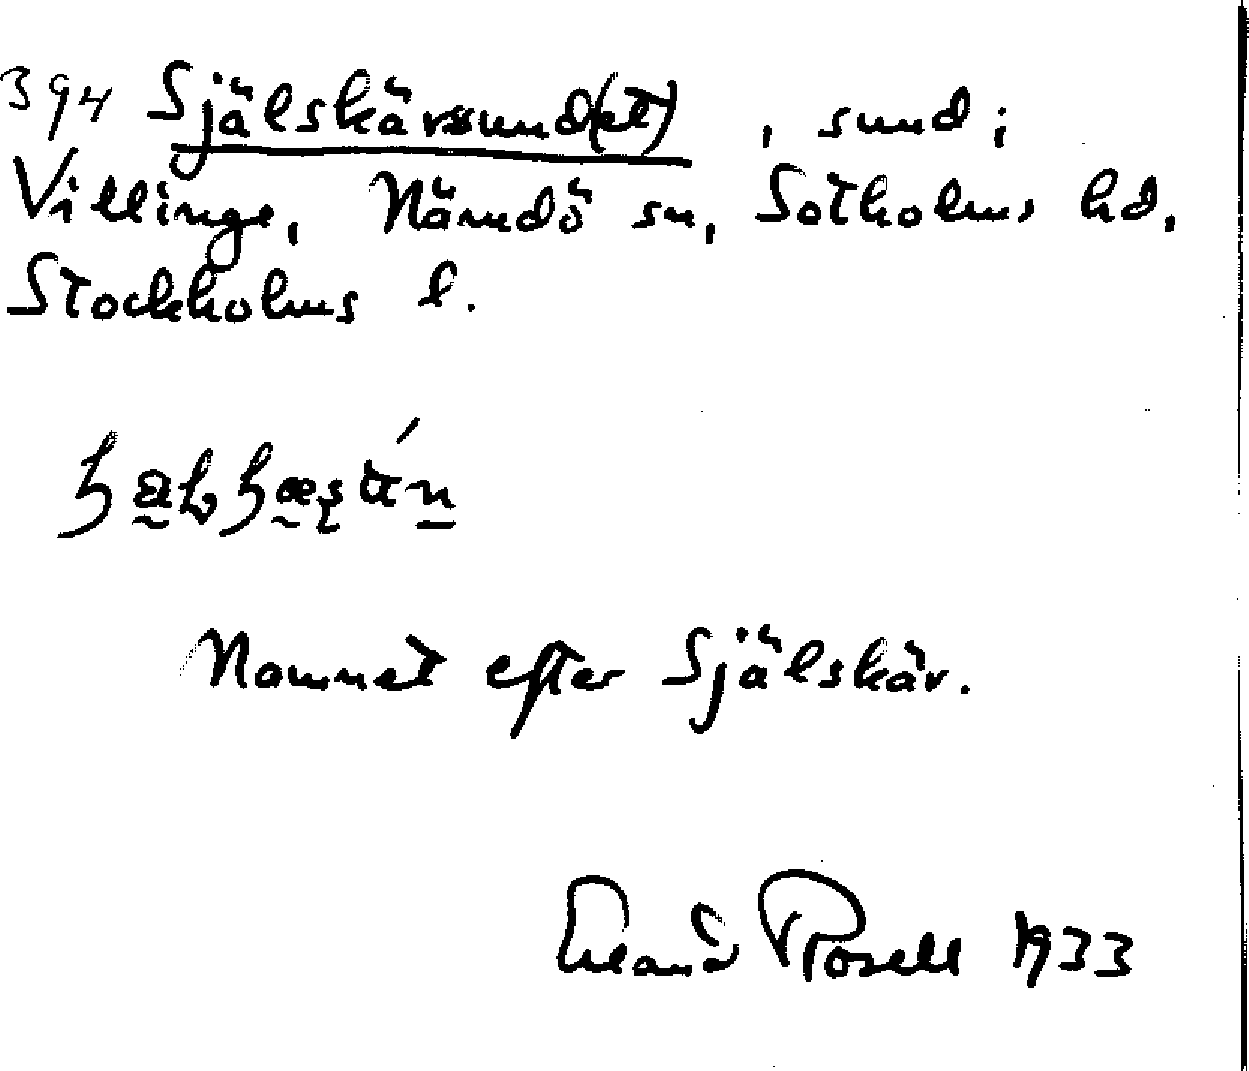 394 Själskärssund(et), sund i
Villinge, Nämdö sn, Sotholms hd,
Stockholms l.
Namnet efter Själskär.
Erland Rosell 1933